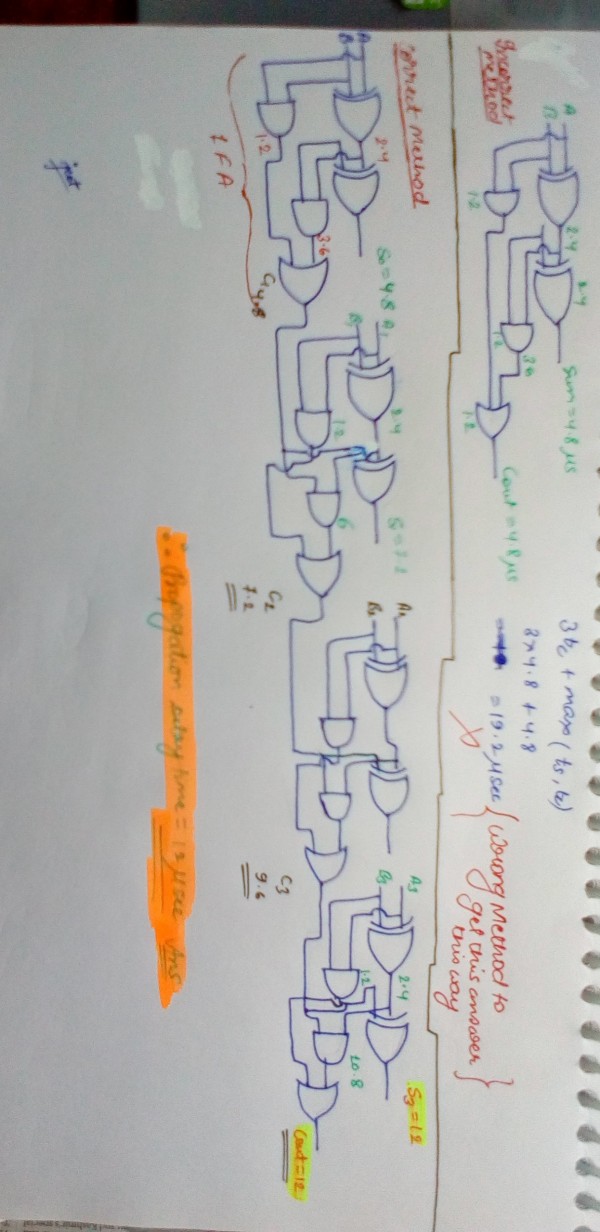 Incorrect
method
A
B
2.4
2.4
Sum = 4.8 μs
1.2
1.2
3.6
1.2
Cout = 4.8 μs
3tc + max (ts, tc)
3 × 4.8 + 4.8
= 19.2 μsec
Wrong Method to
get this answer
this way
correct method
A
B
2.4
S0 = 4.8
1.2
3.6
C1 4.8
1 FA
A1
B1
2.4
1.2
6
C2
7.2
A2
B2
C3
9.6
A3
B3
2.4
1.2
10.8
S3 = 12
Cout = 12
∴ Propagation delay time = 12 μsec Ans
jeet